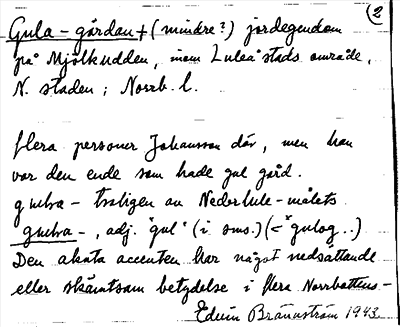 2
Gula-gårdan + (mindre?) jordegendom
på Mjölkudden, inom Luleå stads område,
N. staden i Norrb. l.
flera personer Johansson där, men han
var den ende som hade gul gård.
troligen av Nederlule-målets
-, adj. "gul" (i sms.) (<*gulog..)
Den akuta accenten har något nedsättande
eller skämtsam betydelse i flera Norrbottens-
Edvin Brännström 1943.